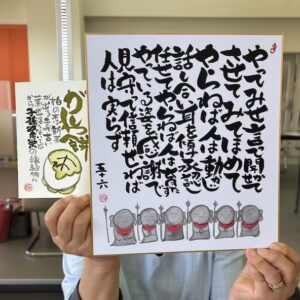 やってみせ言って聞かせて
させてみてほめて
やらねば人は動かじ
話し合い耳を傾け承認し
任せてやらねば人は育たず
やっている姿を感謝で
見守って信頼せねば
人は実らず
五十六
かしわ餅
子孫繁栄の縁起物